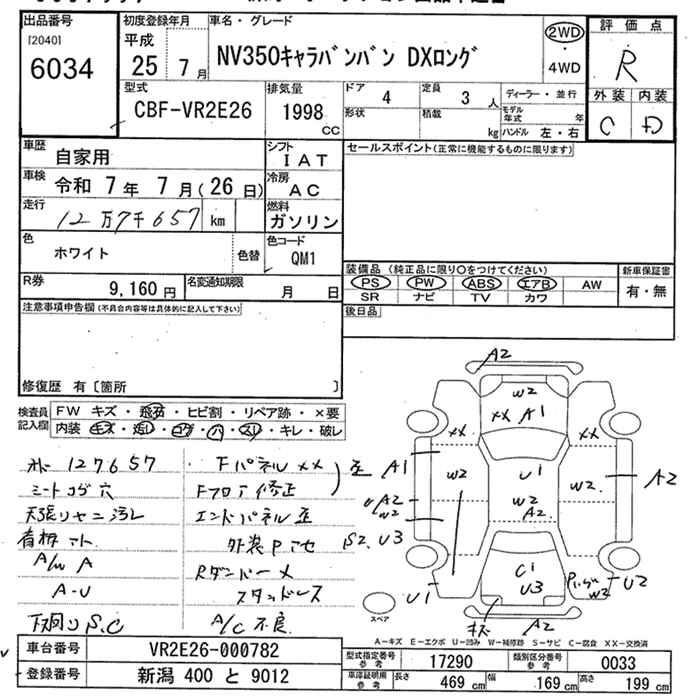 出品番号 初度登録年月 車名・グレード 評価点
[2040] 平成 NV350キャラバンバン DXロング 2WD R
6034 25年7月 ・4WD
型式 排気量 ドア 4 定員 3人 ディーラー・並行 外装 内装
CBF-VR2E26 1998cc 形状 積載 kg モデル年式 年 C D
ハンドル 左・右
車歴 自家用 シフト IAT セールスポイント(正常に機能するものに限ります)
車検 令和 7年 7月(26日) 冷房 AC
走行 12万7千657 km 燃料 ガソリン
色 ホワイト 色替 色コード QM1
R券 9,160円 名変通知期限 月 日
装備品 (純正品に限り○をつけてください) 新車保証書
PS PW ABS エアB AW 有・無
SR ナビ TV カワ
注意事項申告欄(不具合内容等は具体的に記入して下さい) 後日品
修復歴 有〔箇所 〕
検査員記入欄 FW キズ・飛石・ヒビ割・リペア跡・×要
内装 キズ・汚レ・コゲ・穴・スレ・キレ・破レ
127657 Fパネル××
シートコゲ穴 Fフロア修正 歪
天張リヤニ汚レ エンドパネル歪
外装Pセ
A/W A Rダンパーメ
A-U スタンドレス
下廻りS.C A/C不良
A2
W2
XX A1
XX XX
A1 W2 U1 W2 A2
A2 W2
W2 A2
S2. U3
C1
U3
U1 W2 U2
スペア キズ A2
A-キズ E-エクボ U-凹み W-補修跡 S-サビ C-腐食 XX-交換済
車台番号 VR2E26-000782 型式指定番号 参考 17290 類別区分番号 参考 0033
登録番号 新潟 400 と 9012 車庫証明用 参考 長さ 469 cm 幅 169 cm 高さ 199 cm